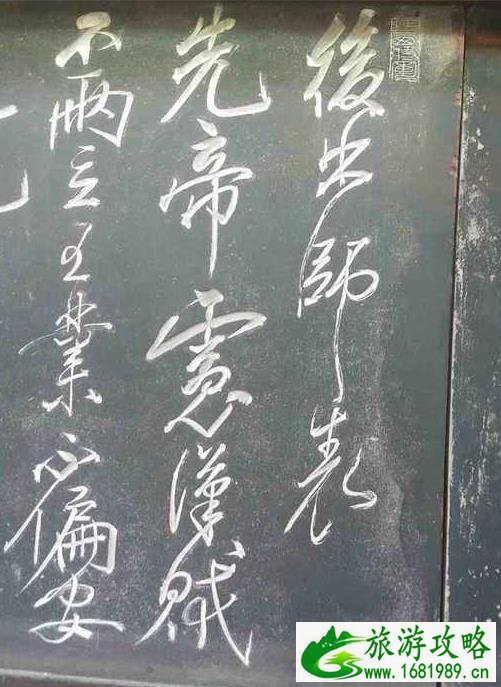 後出師表
先帝慮漢賊
不兩立王業不偏安
旅游攻略
www.1681989.cn